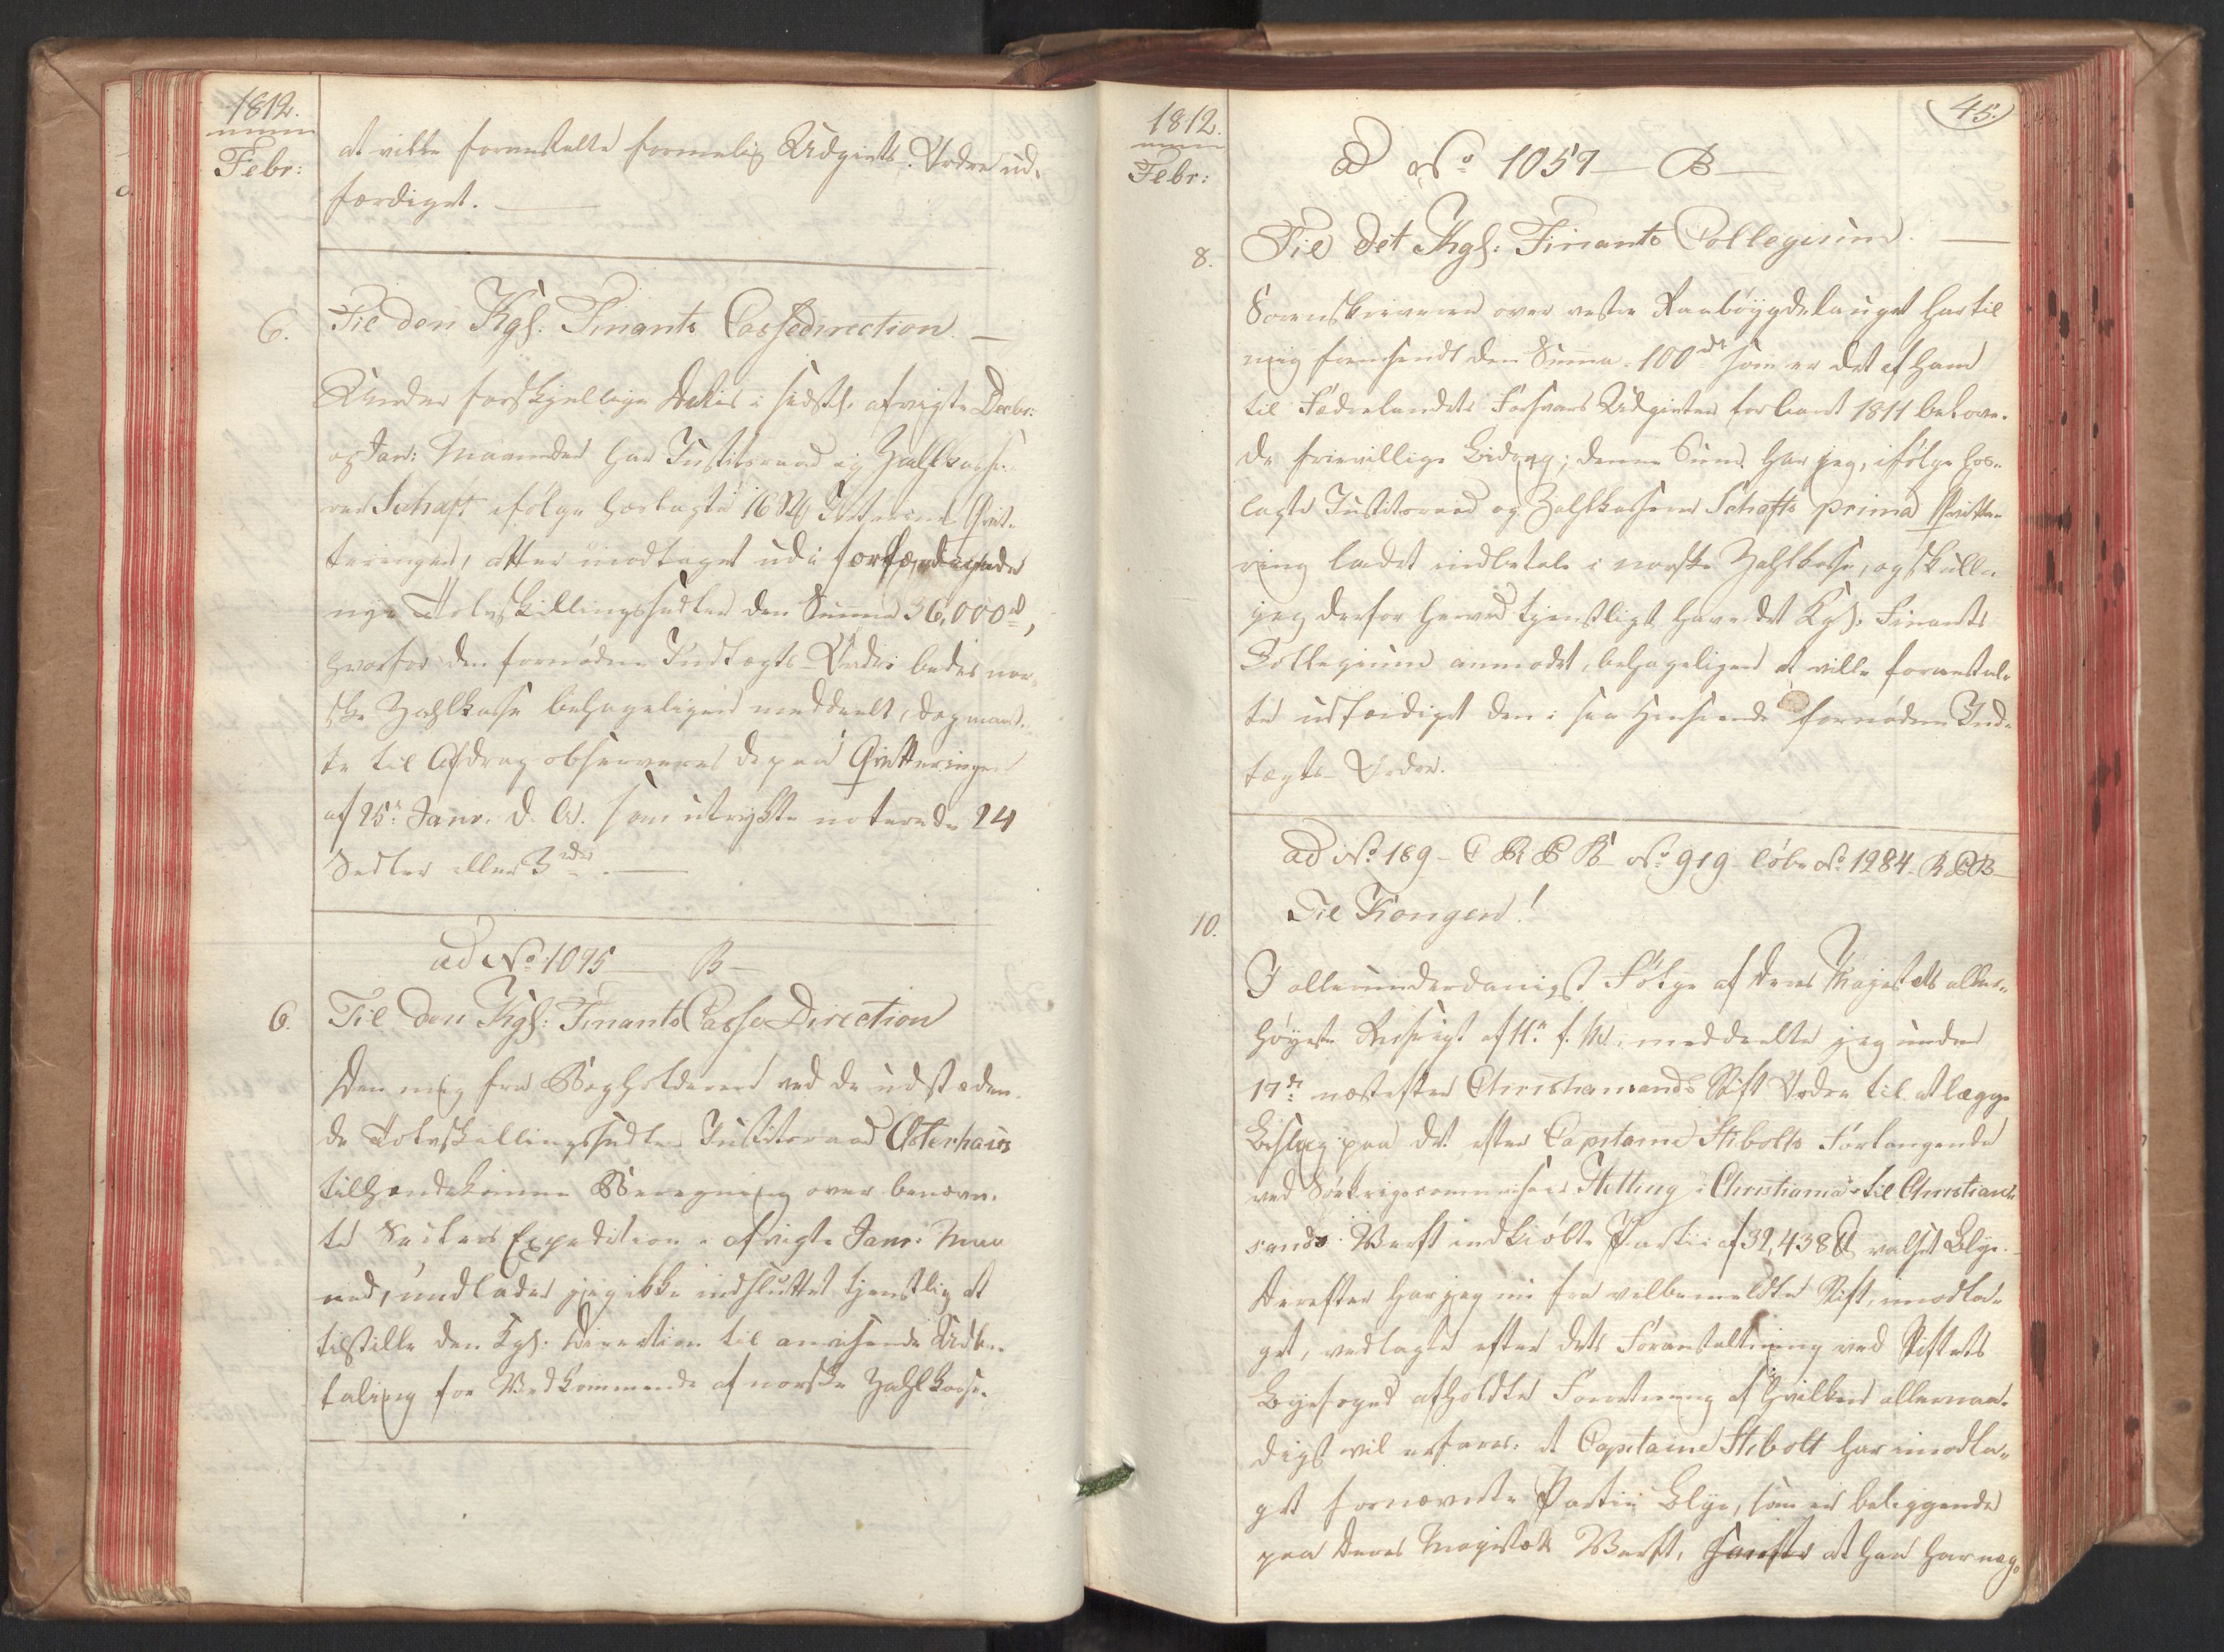 1812.
Febr:
at ville foranstalte formelig Udgivts-Ordre ud-
færdiget.
6.
Til den Kgl: Finants Cassedirection.
Under forskjellige Datis i sidstl. afvigte Decbr:
og Jan: Maaneder har Justitsraad og Zahlkasse-
rer Schaft ifølge hoslagte 16 Interims Qvit-
teringer, atter modtaget udi forfærdigede
nye Tolvskillingssedler den Summa 36,000 rd,
hvorfor den fornødne Indtægts-Ordre bedes nor-
ske Zahlkasse behageligen meddeelt, dog maat-
te til Afdrag observeres de paa Qvitteringen
af 25n Janr. d. A. som utrykte noterede 24
Sedler eller 3 rdr.
ad No. 1095 B
6.
Til den Kgl: Finants Casse Direction
Den mig fra Bogholderen ved de udstæden-
de Tolvskillingssedler Justitsraad Osterhaus
tilhændekomne Beregning over benævn-
te Sedlers Expedition i afvigte Janr: Maa
ned, undlader jeg ikke indsluttet tjenstlig at
tilstille den Kgl: Direction til anvisende Udbe-
taling for Vedkommende af norske Zahlkasse.
1812.
Febr:
45.
ad No. 1057 B
8.
Til det Kgl: Finants Collegium.
Sorenskriveren over vestre Raabøygdelauget har til
mig fremsendt den Summa 100 rdr som er det af ham
til Fædrelandets Forsvars Udgivter for Aaret 1811 belove-
de frievillige Bidrag; denne Sum har jeg, ifølge hos-
lagte Justitsraad og Zahlkasserer Schafts prima Qvitte-
ring ladet indbetale i norske Zahlkasse, og skulle
jeg derfor herved tjenstligst have det Kgl: Finants
Collegium anmodet, behageligen at ville foranstal-
tet udfærdiget den i saa Henseende fornødne Ind-
tægts-Ordre.
ad No. 189 - C R P K No. 919 løbe No. 1284. R P B
10.
Til Kongen!
I allerunderdanigst Følge af Deres Majestæts aller-
høyeste Rescript af 14n f. M. meddeelte jeg under
17de næstefter Christiansands Stift Ordre til at lægge
Beslag paa det efter Capitaine Stibolts Forlangende
ved Søekrigscommissair Stelling i Christiania til Christian-
sands Werft indkiøbte Partii af 32,438 ℔ valset Blye.
Derefter har jeg nu fra velbemeldte Stift, modta-
get, vedlagte efter dets Foranstaltning ved Stiftets
Byefoged afholdte Forretning af hvilken allernaa-
digst vil erfares: at Capitaine Stibolt har modta-
get fornævnte Partii Blye, som er beliggende
paa Deres Majestæts Werft, at han har næg-